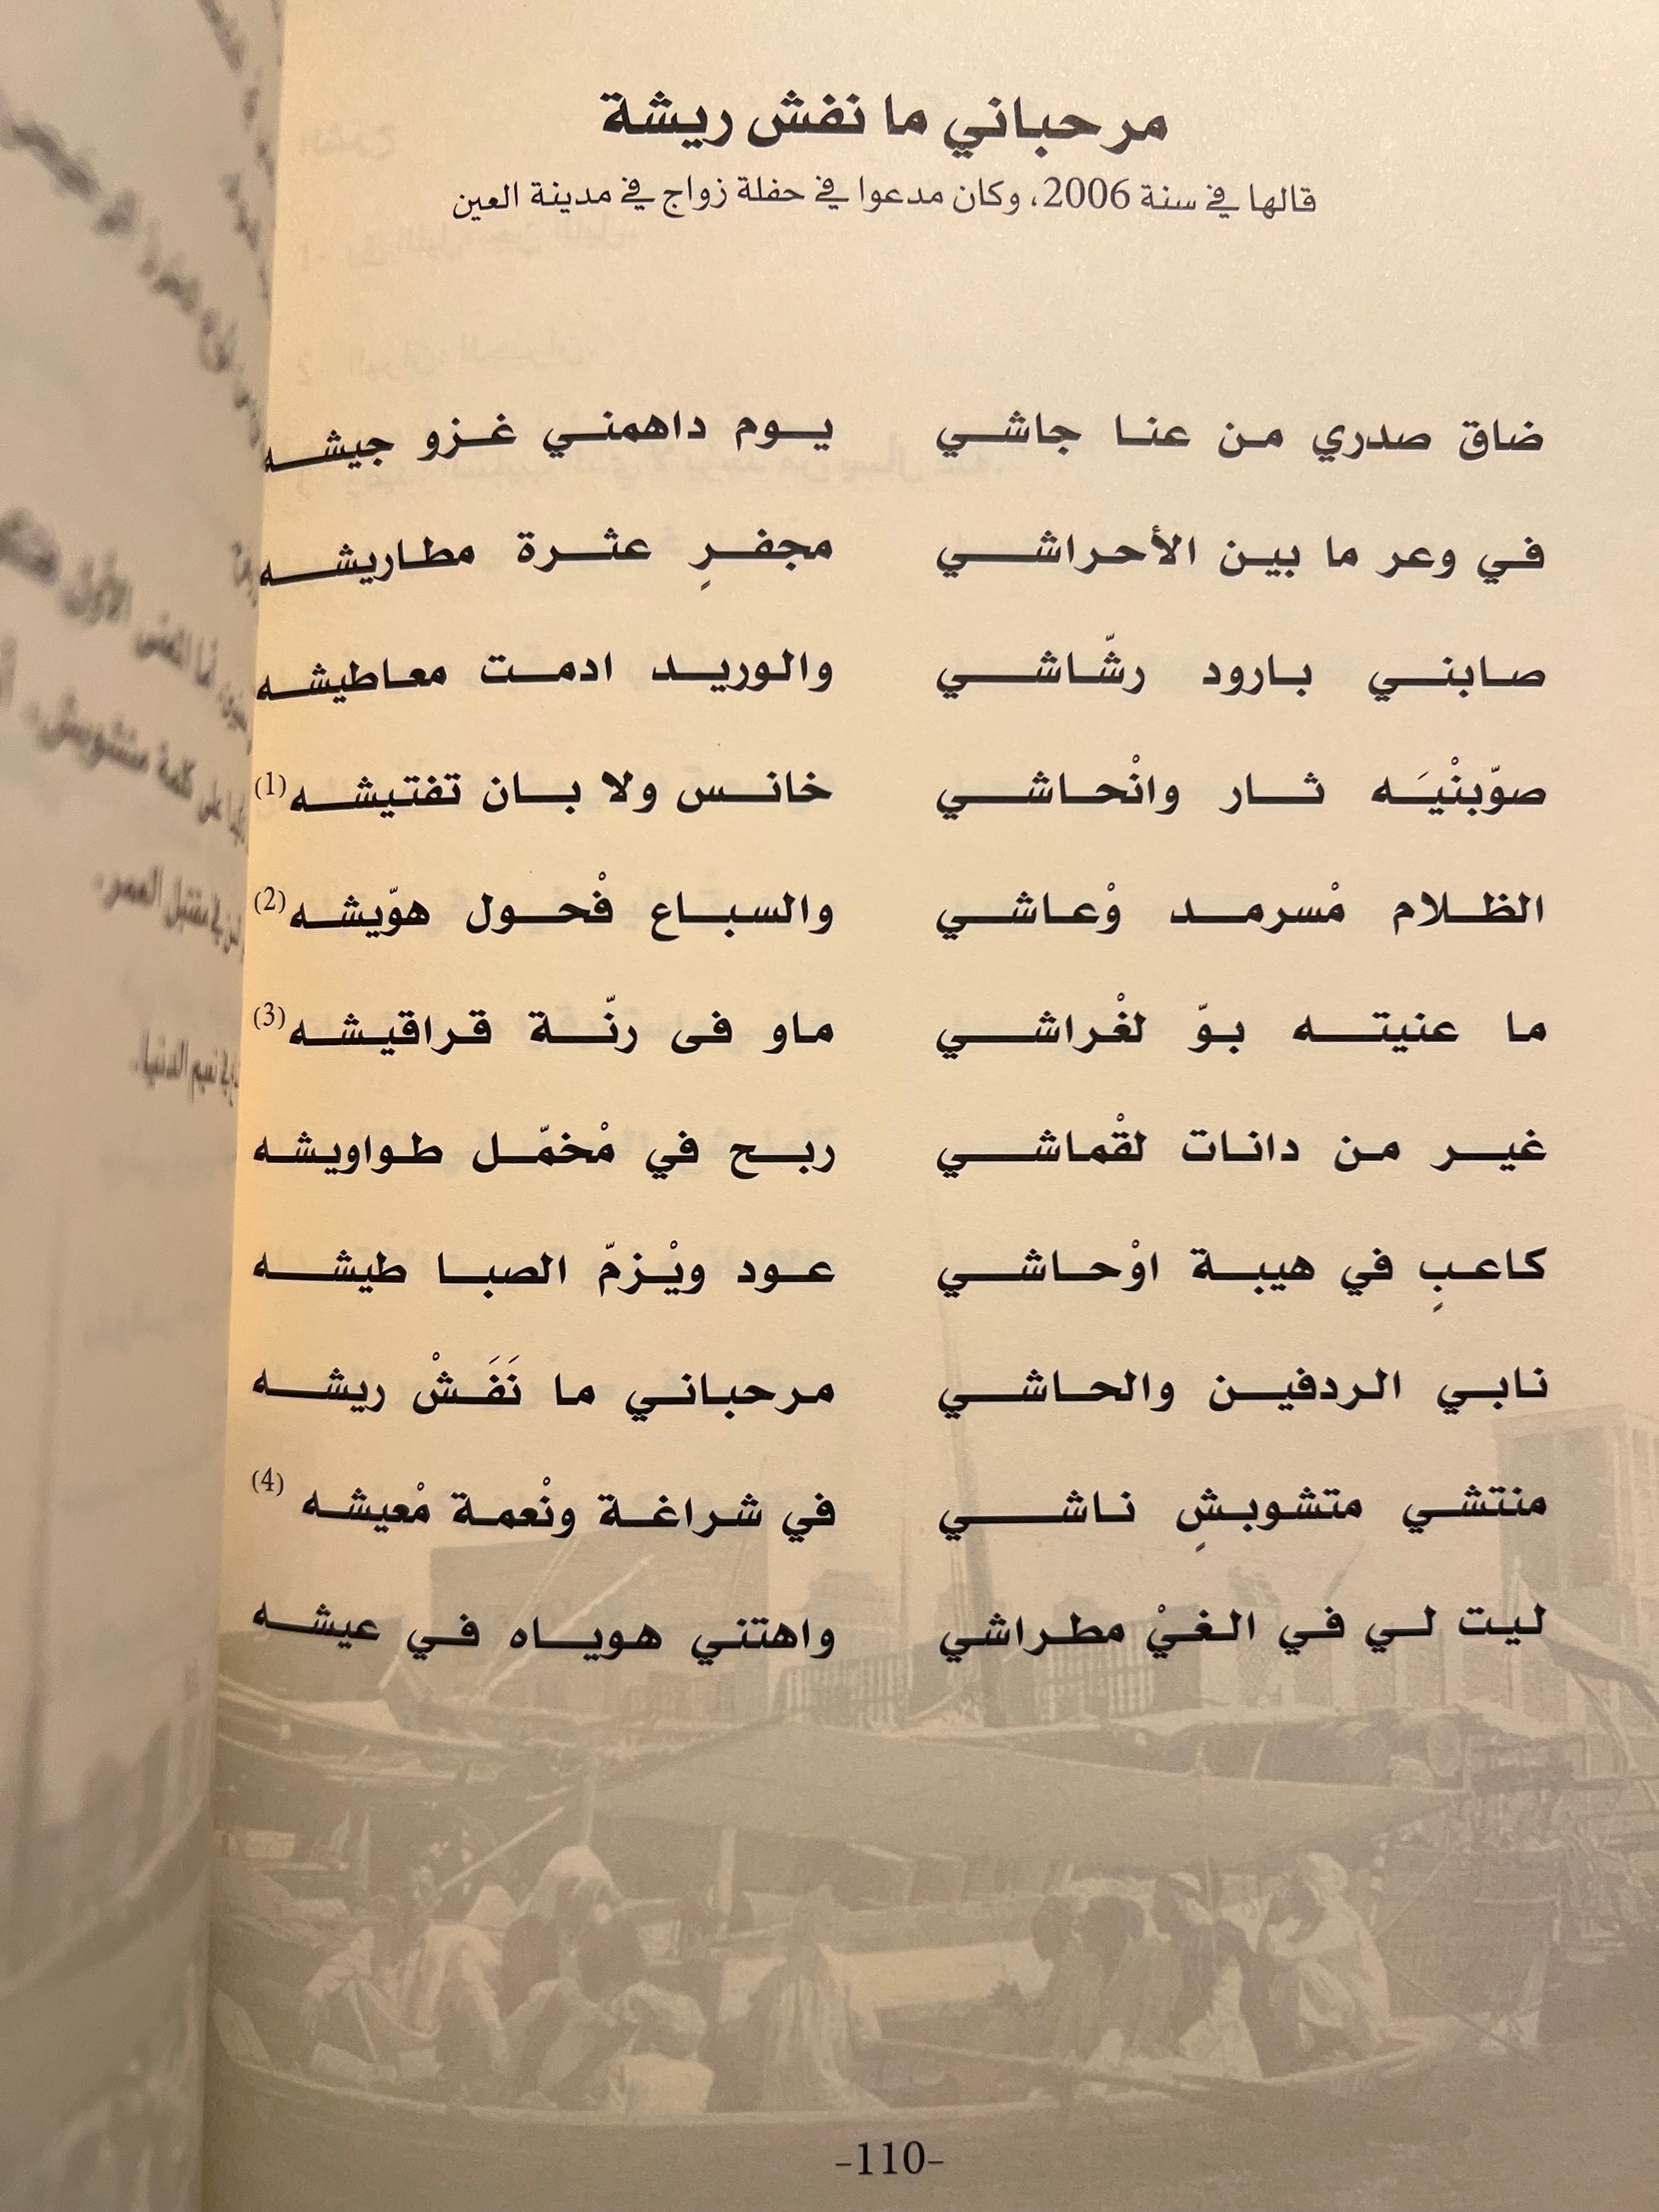 مرحباني ما نفش ريشة
قالها في سنة 2006، وكان مدعوا في حفلة زواج في مدينة العين
ضاق صدري من عنا جاشي يوم داهمني غزو جيشه
في وعر ما بين الأحراشي مجفرٍ عثرة مطاريشه
صابني بارود رشّاشي والوريد ادمت معاطيشه
صوّبنْيَه ثار وانْحاشي خانس ولا بان تفتيشه (1)
الظلام مْسرمد وْعاشي والسباع فْحول هوّيشه (2)
ما عنيته بوّ لغْراشي ماو فى رنّة قراقيشه (3)
غير من دانات لقْماشي ربح في مْخمّل طواويشه
كاعبٍ في هيبة اوْحاشي عود ويْزمّ الصبا طيشه
نابي الردفين والحاشي مرحباني ما نَفَشْ ريشه
منتشي متشوبشٍ ناشي في شراغة ونْعمة مْعيشه (4)
ليت لي في الغيْ مطراشي واهتني هوياه في عيشه
-110-
أما المعنى الأول
على كلمة متشوبش
في مقتبل العمر.
في نعيم الدنيا.